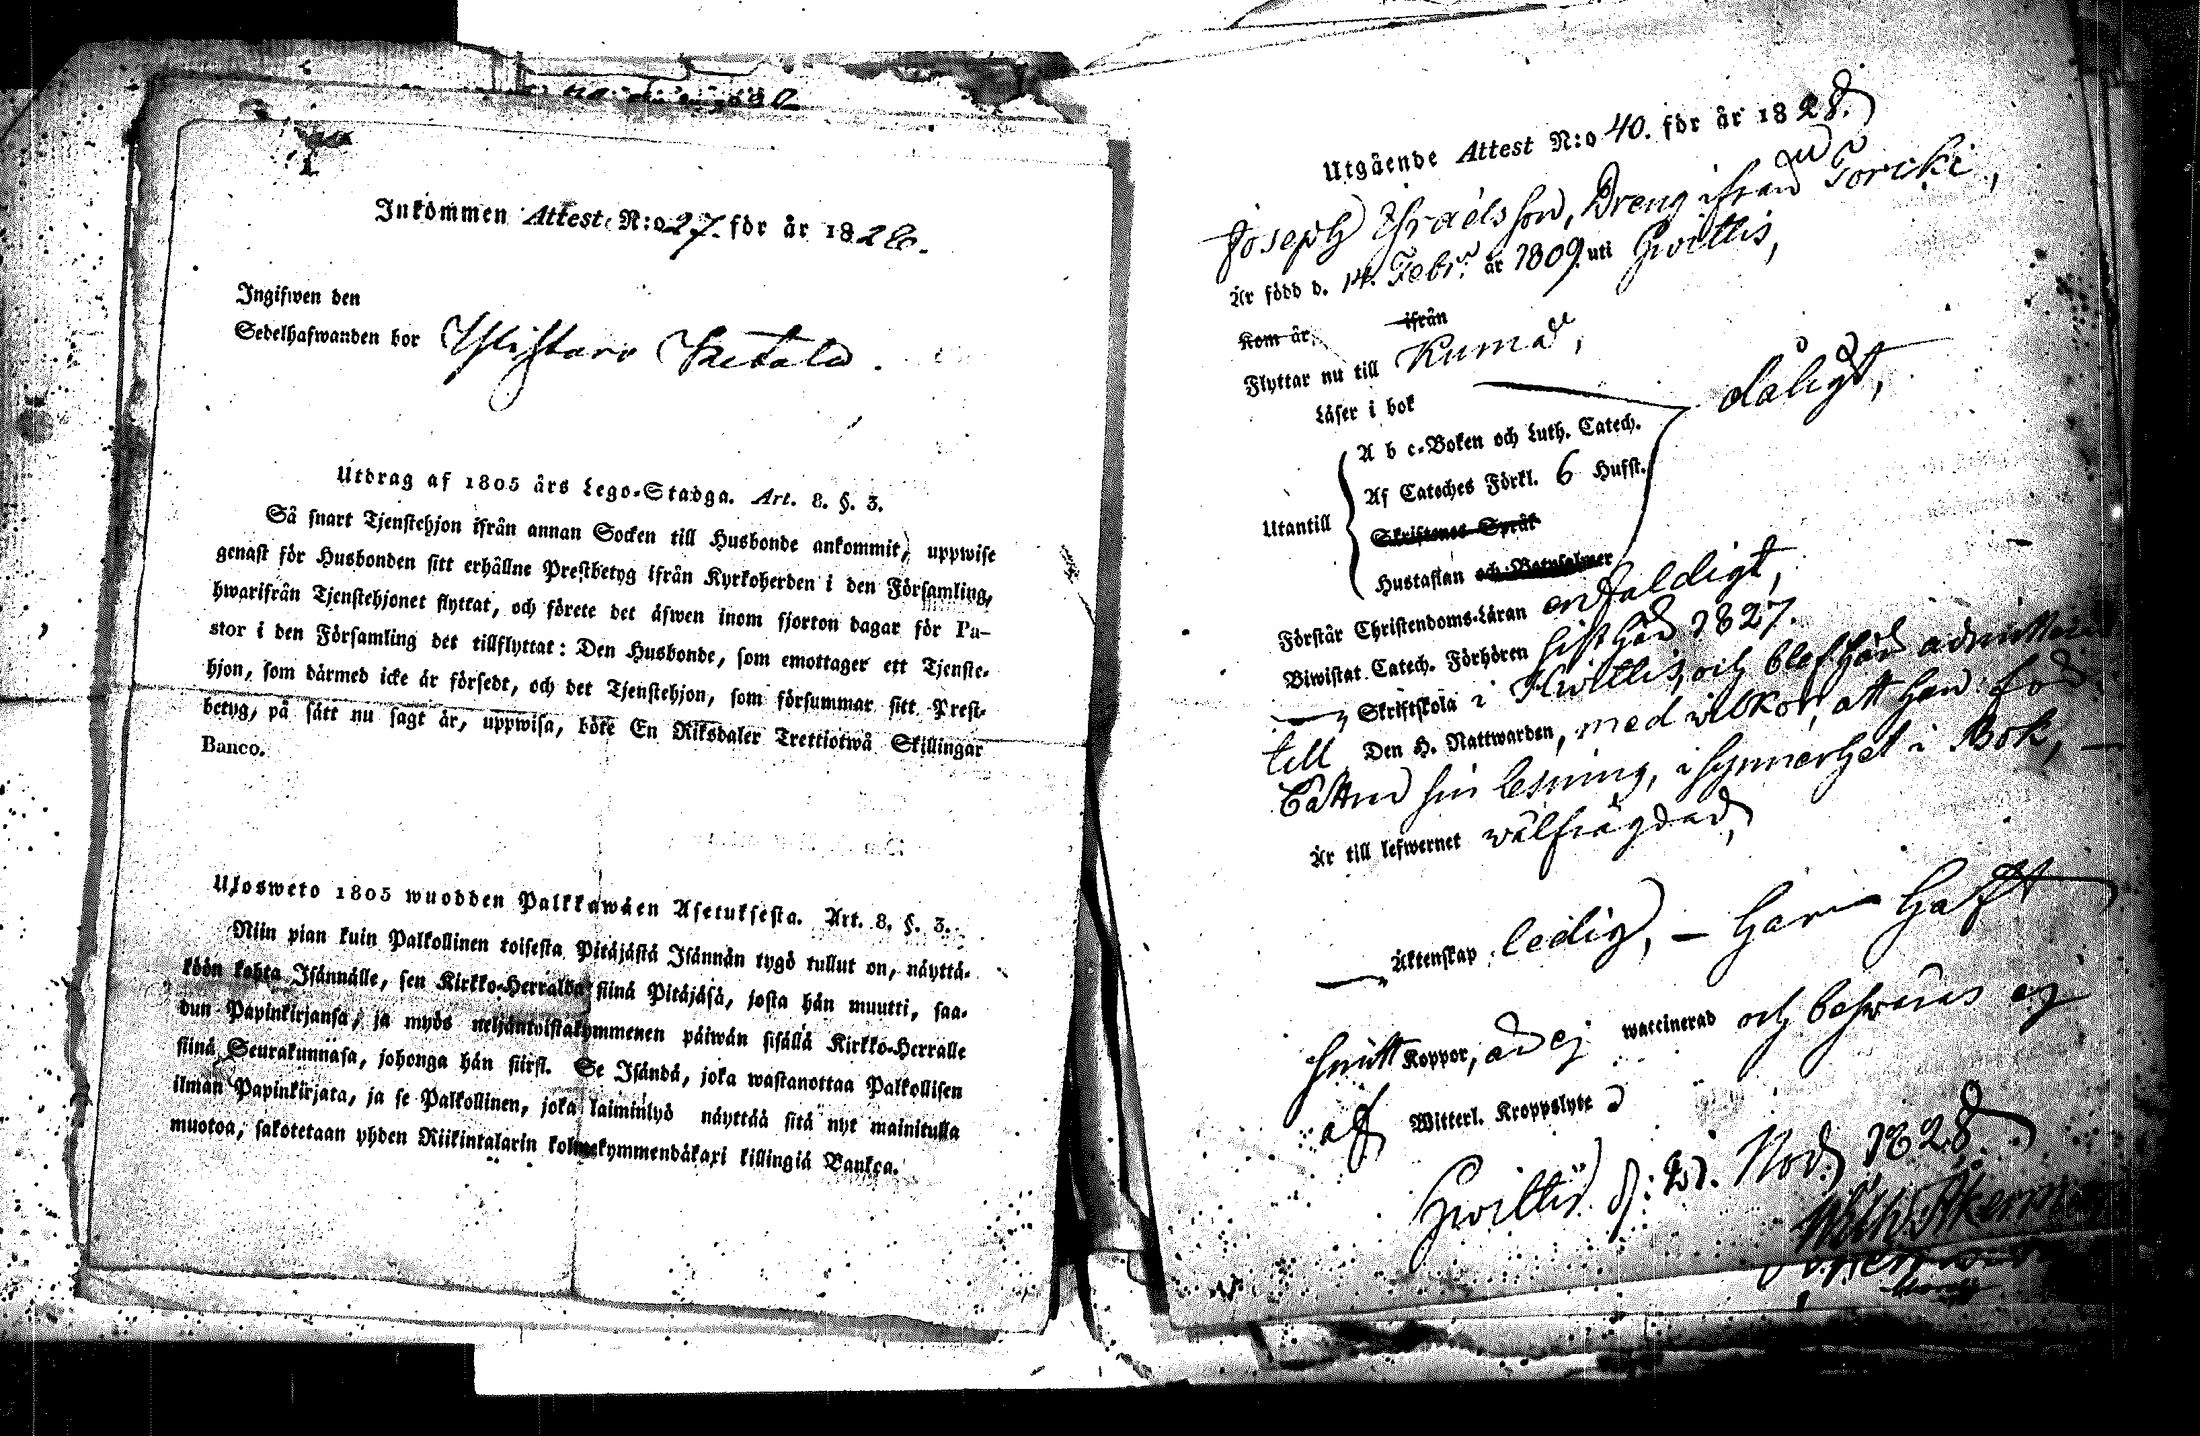 Inkommen Attest N:o 27. för år 1828.
Ingifwen den
Sedelhafwanden bor
Utdrag af 1805 års Lego-Stadga. Art. 8. §. 3.
Så snart Tjenstehjon ifrån annan Socken till Husbonde ankommit, uppwise
genast för Husbonden sitt erhållne Prestbetyg ifrån Kyrkoherden i den Församling,
hwarifrån Tjenstehjonet flyttat, och förete det äfwen inom fjorton dagar för Pa-
stor i den Församling det tillflyttat: Den Husbonde, som emottager ett Tjenste-
hjon, som därmed icke är försedt, och det Tjenstehjon, som försummar sitt Prest-
betyg, på sätt nu sagt är, uppwisa, böte En Riksdaler Trettiotwå Skillingar
Banco.
Ulosweto 1805 wuodden Palkkawäen Asetuksesta. Art. 8. §. 3.
Niin pian kuin Palkollinen toisesta Pitäjästä Isännän tygö tullut on, näyttä-
köön kohta Isännälle, sen Kirkko-Herralda siinä Pitäjäsä, josta hän muutti, saa-
dun Papinkirjansa, ja myös neljäntoistakymmenen päiwän sisällä Kirkko-Herralle
siinä Seurakunnasa, johonga hän siirsi. Se Isändä, joka wastanottaa Palkollisen
ilman Papinkirjata, ja se Palkollinen, joka laiminlyö näyttää sitä nyt mainitulla
muotoa, sakotetaan yhden Riikintalarin kolmekymmendäkaxi killingiä Bankoa.
Utgående Attest N:o 40. för år 1828.
Joseph Israelsson, Dreng ifrån Torcki,
Är född d. 14. Febr. år 1809. uti Hwittis,
Kom år, ifrån
Flyttar nu till Kumo,
Läser i bok dåligt,
Utantill
A b c-Boken och Luth. Catech.
Af Catechес Förkl. 6 Hufst.
Skriftenes Språk
Hustaflan och Botpsalmer
Förstår Christendoms-Läran enfaldigt,
Biwistat Catech. Förhören sist här 1827.
Skriftskola i Hwittis, och blef här
till Den H. Nattwarden, med wilkor, att han
bättrar sin lesning, i synnerhet i Bok,
Är till lefwernet wälfrägdad,
Äktenskap ledig, – har haft
Koppor, är ej waccinerad och beswäras ej
af Witterl. Kroppslyte
Hwittis d: Nov. 1828.